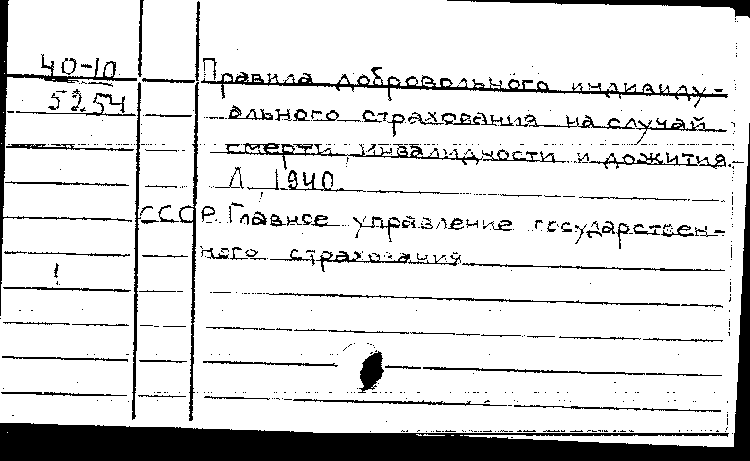 40-10
5254
Правила добровольного индивиду-
ального страхования на случай
смерти, инвалидности и дожития.
Л., 1940.
СССР. Главное управление государствен-
ного страхования
!